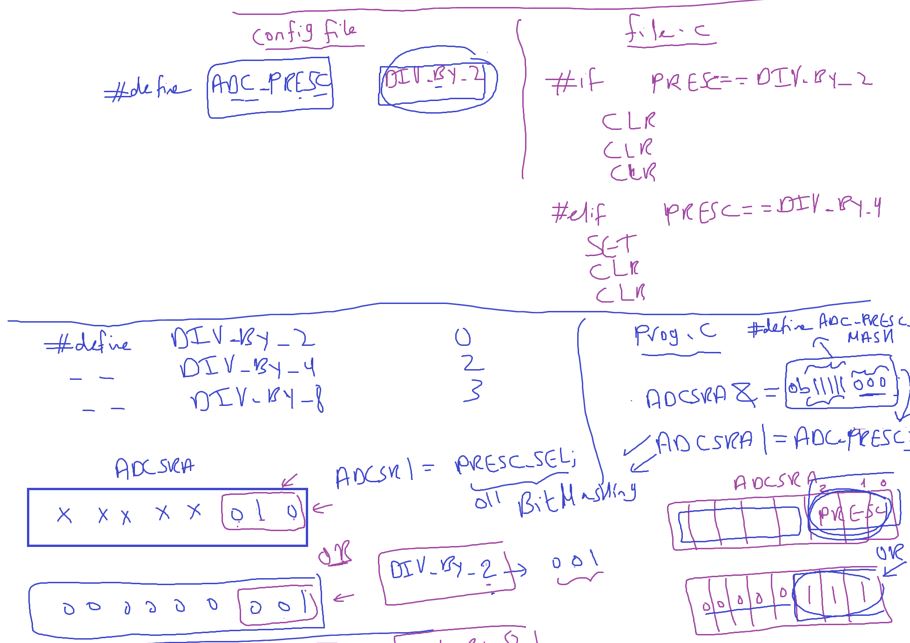 config file
#define ADC_PRESC DIV_By_2
file.c
#if PRESC==DIV_By_2
CLR
CLR
CLR
#elif PRESC==DIV_By_4
SET
CLR
CLR
#define DIV_By_2 0
-- DIV_By_4 2
-- DIV_By_8 3
ADCSRA
x x x x x 0 1 0
ADCSR|= PRESC_SEL;
011 BitMasking
OR
DIV_By_2 → 001
0 0 0 0 0 0 0 1
Prog.c #define ADC_PRESC_
MASK
ADCSRA &= 0b11111 000
ADCSRA |= ADC_PRESC_
ADCSRA
2 1 0
PRESC
OR
0 0 0 0 0 1 1 1